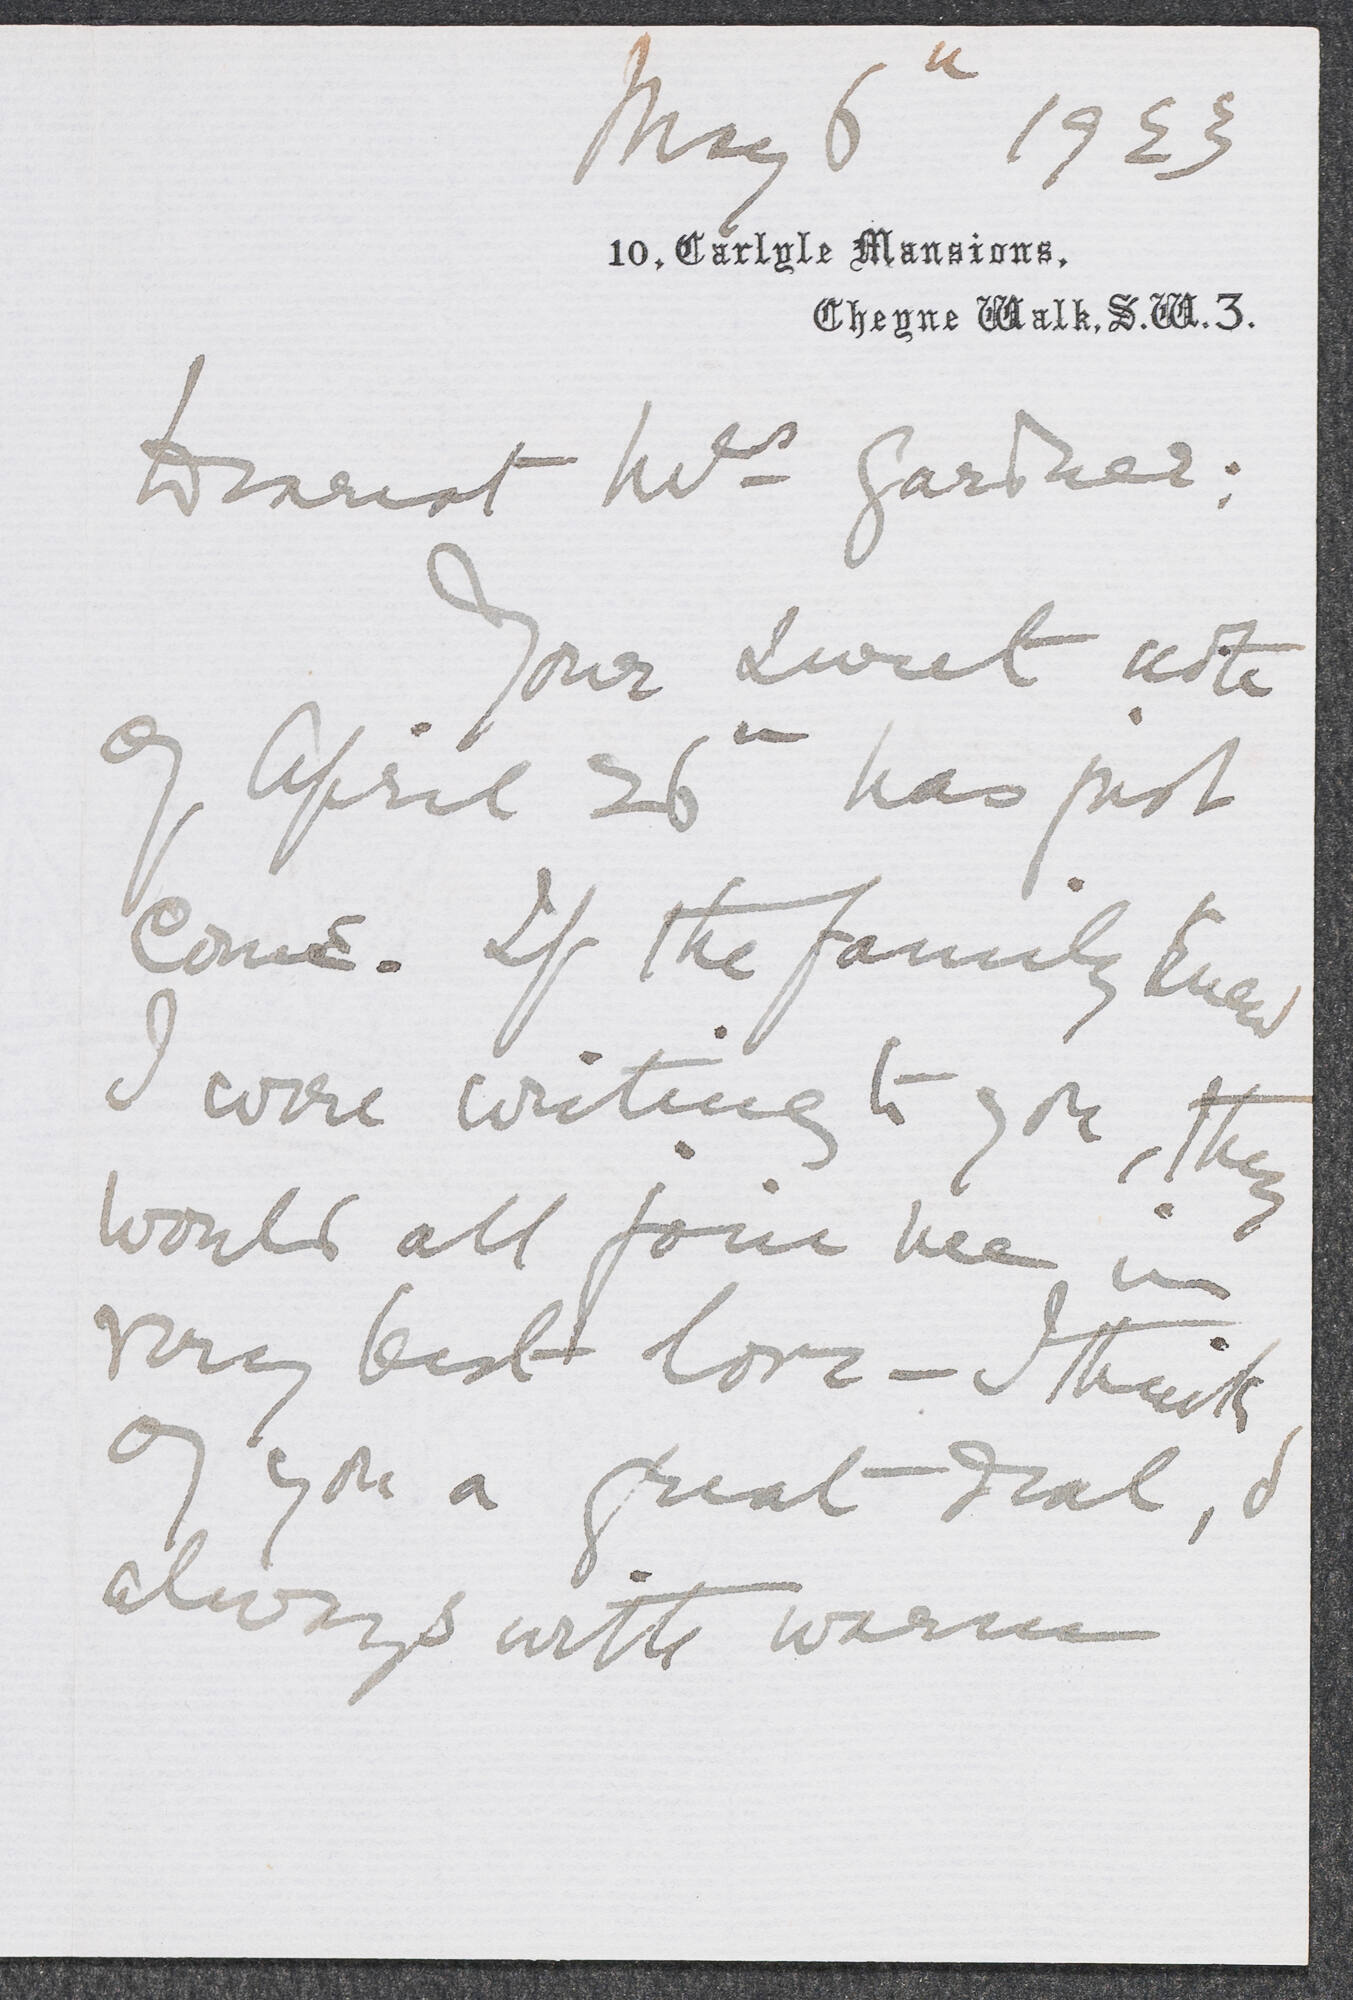 May 6th 1923
10, Carlyle Mansions,
Cheyne Walk, S.W.3.
Dearest Mrs Gardner;
Your sweet note
of April 26th has just
come. If the family knew
I were writing to you, they
would all join me in
very best love – I think
of you a great deal, &
always with warm